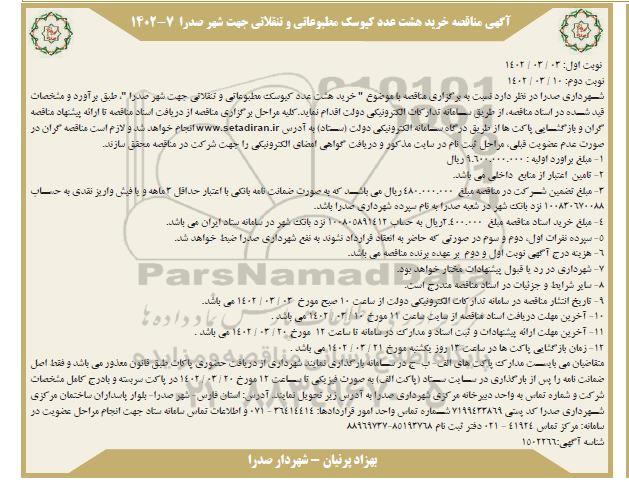 آگهی مناقصه خرید هشت عدد کیوسک مطبوعاتی و تنقلاتی جهت شهر صدرا ۷-۱۴۰۲
نوبت اول: ۰۳ / ۰۳ / ۱۴۰۲
نوبت دوم: ۱۰ / ۰۳ / ۱۴۰۲
شهرداری صدرا در نظر دارد نسبت به برگزاری مناقصه با موضوع " خرید هشت عدد کیوسک مطبوعاتی و تنقلاتی جهت شهر صدرا "، طبق برآورد و مشخصات
قید شده در اسناد مناقصه، از طریق سامانه تدارکات الکترونیکی دولت اقدام نماید. کلیه مراحل برگزاری مناقصه از دریافت اسناد مناقصه تا ارائه پیشنهاد مناقصه
گران و بازگشایی پاکت ها از طریق درگاه سامانه الکترونیکی دولت (ستاد) به آدرس www.setadiran.ir انجام خواهد شد و لازم است مناقصه گران در
صورت عدم عضویت قبلی، مراحل ثبت نام در سایت مذکور و دریافت گواهی امضای الکترونیکی را جهت شرکت در مناقصه محقق سازند.
۱- مبلغ برآورد اولیه : ۹.۶۰۰.۰۰۰.۰۰۰ ریال
۲- تامین اعتبار از منابع داخلی می باشد.
۳- مبلغ تضمین شرکت در مناقصه مبلغ ۴۸۰.۰۰۰.۰۰۰ ریال می باشد که به صورت ضمانت نامه بانکی با اعتبار حداقل ۳ماهه و یا فیش واریز نقدی به حساب
۱۰۰۸۳۰۶۷۰۰۸۸ نزد بانک شهر در شعبه صدرا به نام سپرده شهرداری صدرا باشد.
۴- مبلغ خرید اسناد مناقصه مبلغ ۲.۴۰۰.۰۰۰ریال به حساب ۱۰۰۸۰۵۸۹۱۴۱۲ نزد بانک شهر در سامانه ستاد ایران می باشد.
۵- سپرده نفرات اول، دوم و سوم در صورتی که حاضر به انعقاد قرارداد نشوند به نفع شهرداری صدرا ضبط خواهد شد.
۶- هزینه درج آگهی نوبت اول و دوم بر عهده برنده مناقصه می باشد.
۷- شهرداری در رد یا قبول پیشنهادات مختار خواهد بود.
۸- سایر شرایط و جزئیات در اسناد مناقصه مندرج است.
۹- تاریخ انتشار مناقصه در سامانه تدارکات الکترونیکی دولت از ساعت ۱۰ صبح مورخ ۰۳ / ۰۳ / ۱۴۰۲ می باشد.
۱۰- آخرین مهلت دریافت اسناد مناقصه از سایت ساعت ۱۱ مورخ ۱۰ / ۰۳ / ۱۴۰۲ می باشد .
۱۱- آخرین مهلت ارائه پیشنهادات و ثبت اسناد و مدارک در سامانه تا ساعت ۱۲ مورخ ۲۰ / ۰۳ / ۱۴۰۲ می باشد .
۱۲- زمان بازگشایی پاکت ها در ساعت ۱۳ روز یکشنبه مورخ ۲۱ / ۰۳ / ۱۴۰۲ می باشد .
متقاضیان می بایست مدارک پاکت های الف- ب-ج در سامانه بارگذاری نمایند شهرداری از دریافت حضوری پاکات طبق قانون معذور می باشد و فقط اصل
ضمانت نامه را پس از بارگذاری در سایت ستاد (پاکت الف) به صورت فیزیکی تا ساعت ۱۲ مورخ ۲۰ / ۰۳ / ۱۴۰۲ در پاکت سربسته و بادرج کامل مشخصات
شرکت و شماره تماس به واحد دبیرخانه مرکزی شهرداری صدرا به آدرس زیر تحویل نمایند. آدرس: استان فارس- شهر صدرا- بلوار پاسداران ساختمان مرکزی
شهرداری صدرا کد پستی ۷۱۹۹۴۳۳۸۶۹ شماره تماس واحد امور قراردادها: ۳۶۴۱۴۴۱۴ - ۰۷۱ و اطلاعات تماس سامانه ستاد جهت انجام مراحل عضویت در
سامانه: مرکز تماس ۴۱۹۲۴ - ۰۲۱ دفتر ثبت نام ۸۵۱۹۳۷۶۸-۸۸۹۶۹۷۳۷
شناسه آگهی:۱۵۰۲۲۶۶
بهزاد پرنیان - شهردار صدرا
ParsNamadData